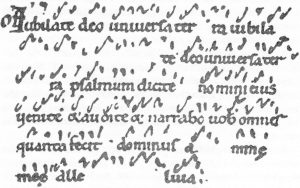 Iubilate deo universa ter ra iubila
te deo universa ter
ra psalmum dicite nomini eius
venite & audite & narrabo vob omnes
quanta fecit dominus mee
alle luia